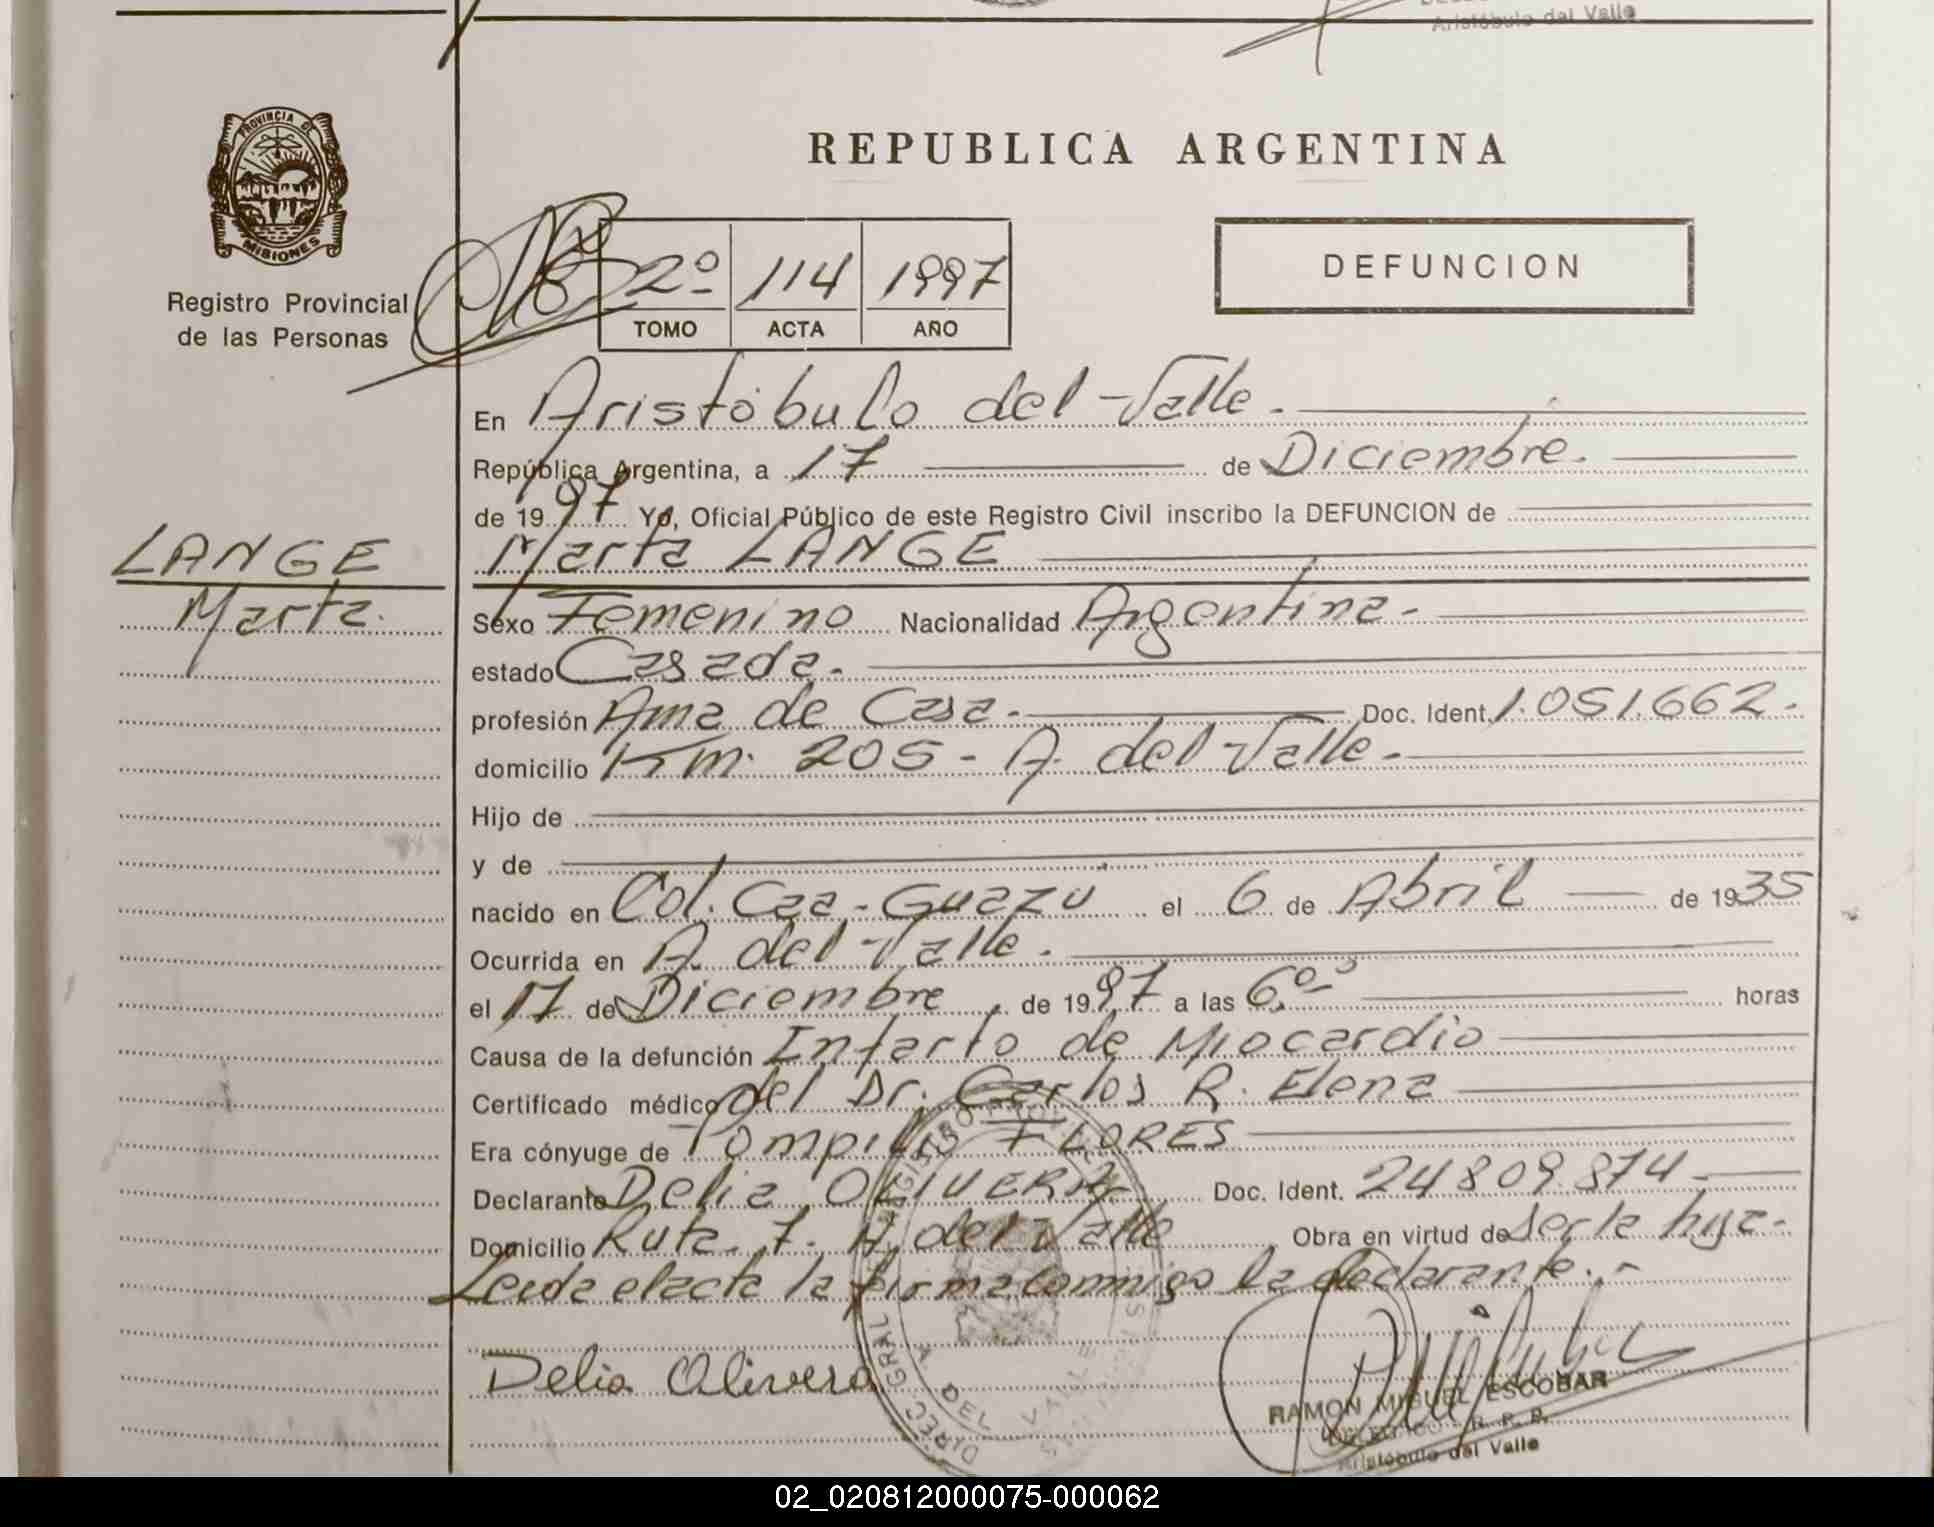 Aristóbulo del Valle
PROVINCIA DE
MISIONES
Registro Provincial
de las Personas
REPUBLICA ARGENTINA
2º 114 1997
TOMO ACTA AÑO
DEFUNCION
En Aristóbulo del Valle.
República Argentina, a 17 de Diciembre.
de 1997 Yo, Oficial Público de este Registro Civil inscribo la DEFUNCION de
LANGE
Marta LANGE
Marta.
Sexo Femenino Nacionalidad Argentina-
estado Casada.
profesión Ama de Casa. Doc. Ident. 1.051.662-
domicilio Km. 205- A. del Valle-
Hijo de
y de
nacido en Col. Caa-Guazú el 6 de Abril de 1935
Ocurrida en A. del Valle.
el 17 de Diciembre de 1997 a las 6.00 horas
Causa de la defunción Infarto de Miocardio
Certificado médico del Dr. Carlos R. Elena
Era cónyuge de Pompilio FLORES
Declarante Delia OLIVERA Doc. Ident. 24809.874-
Domicilio Ruta 7. A. del Valle Obra en virtud de ser la hija.
Leida el acta la firma conmigo la declarante.-
Delia Olivera
DIREC. GRAL. REGISTRO
DEL VALLE
RAMON MIGUEL ESCOBAR
DELEGADO R. P. P.
Aristóbulo del Valle
02_020812000075-000062